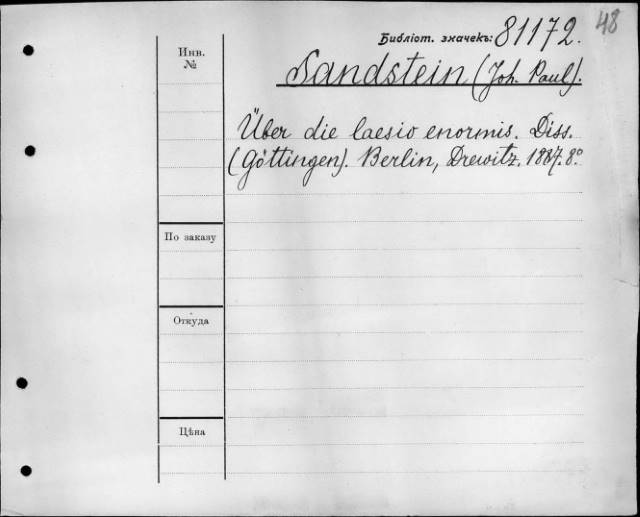 48
Библіот. значекъ: 81172.
Инв.
№
Sandstein (Joh. Paul).
Über die laesio enormis. Diss.
(Göttingen). Berlin, Drewitz. 1887. 8°
По заказу
Откуда
Цѣна